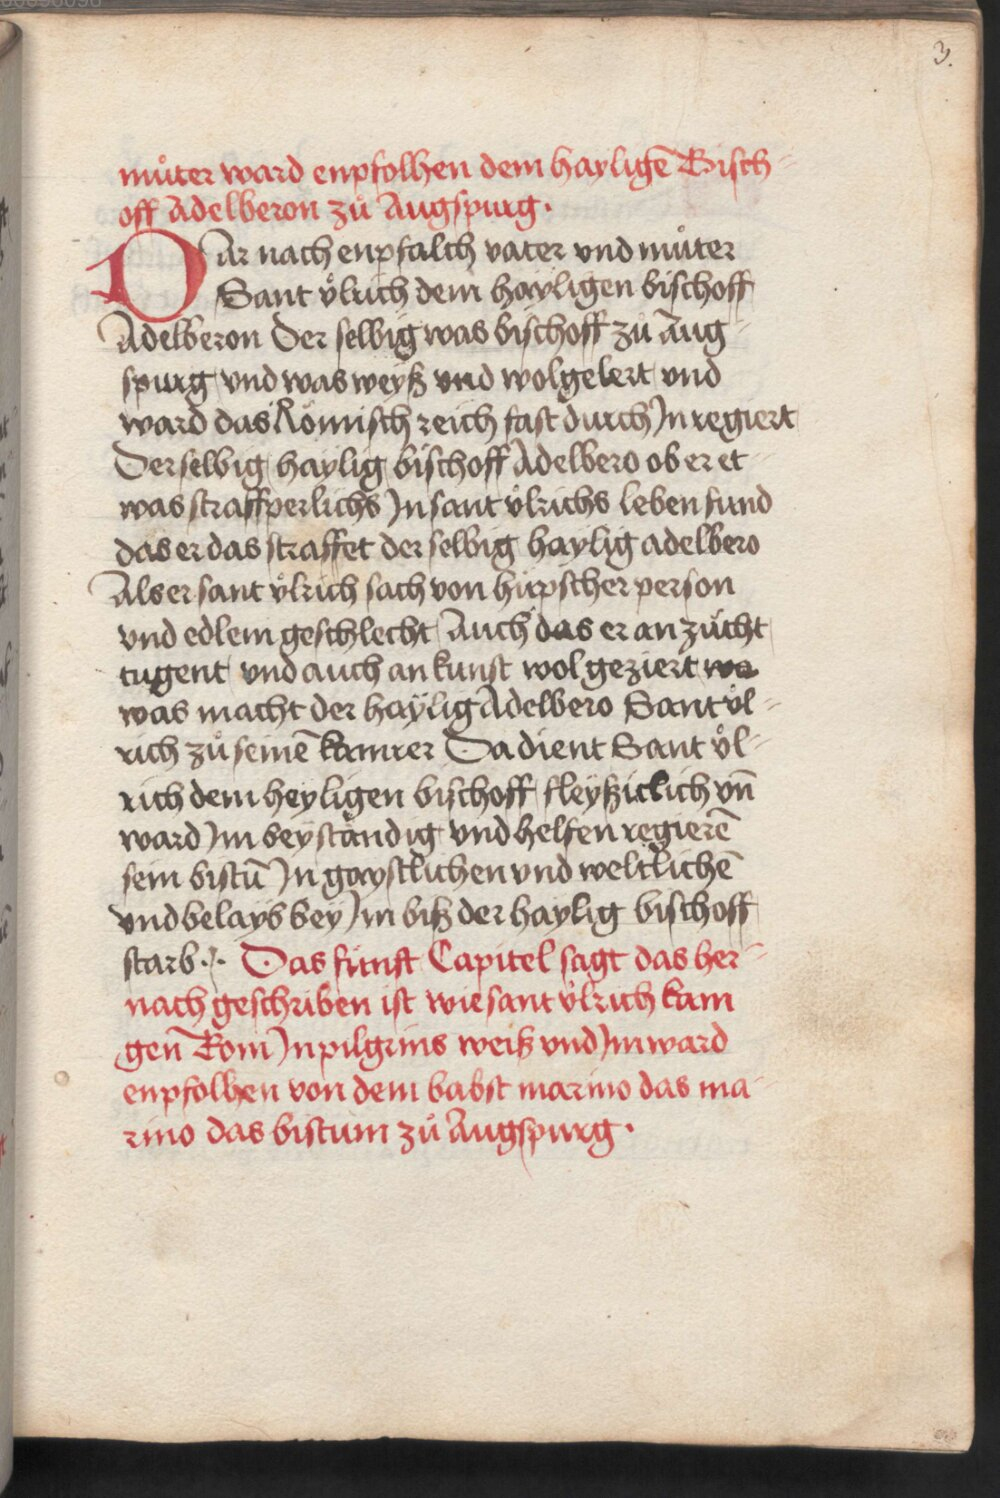 3.
můter ward enpfolhen dem hayligē Bisch-
off Adelberon zů Augspurg.
DAr nach enpfalch vater vnd můter
Sant vͦlrich dem hayligen bischoff
Adelberon Der selbig was bischoff zů Aug-
spurg vnd was weyß vnd wolgelert vnd
ward das Römisch reich fast durch Jn regiert
Der selbig haylig bischoff Adelbero ob er et-
was straffperlichs Jn sant vͦlrichs leben fund
das er das straffet der selbig haylig adelbero
Als er sant vͦlrich sach von hüpscher person
vnd edlem geschlecht Auch das er an zücht
tugent vnd auch an kunst wol geziert wa
was macht der haÿlig Adelbero Sant vͦl-
rich zů seinē kamrer Da dient Sant vͦl-
rich dem heyligen bischoff fleyßiclich vn̄
ward Jm beyständig vnd helfen regierē
sein bistū Jn gaystlichen vnd weltlichē
vnd belayb bey Jm biß der haylig bischoff
starb. Das fünft Capitel sagt das her-
nach geschriben ist wie sant vͦlrich kam
gen Rom Jn pilgrins weiß vnd Jm ward
enpfolhen von dem babst marino das ma-
rino das bistum zů Augspurg.